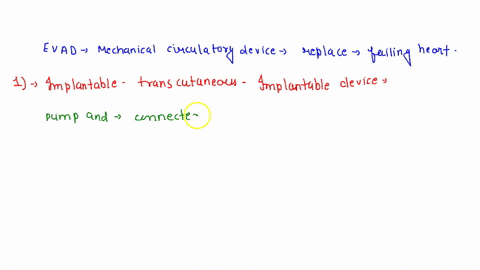 EVAD → Mechanical circulatory device → replace → failing heart.
1) → Implantable - transcutaneous - Implantable device →
pump and → connecte-